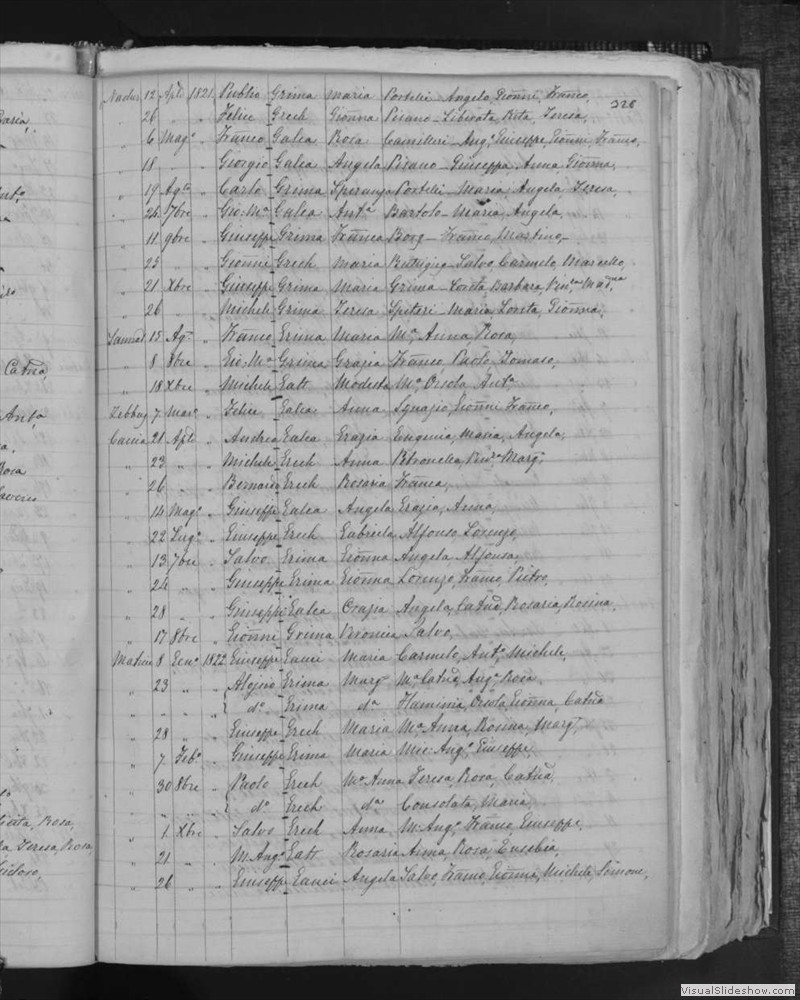 328
Nadur 12 Aple 1821 Publio Grima Maria Portelli Angelo, Gionni, Franco,
" 26 " " Felice Grech Gionna Pisano Liberata, Rita, Teresa,
" 6 Mago " Franco Galea Rosa Camilleri Ango, Giuseppe, Gionni, Franco,
" 18 " " Giorgio Galea Angela Pisano Giuseppa, Anna, Gionna,
" 19 Agto " Carlo Grima Speranza Portelli Maria, Angela, Teresa,
" 24 7bre " Gio: Ma Galea Anta Bartolo Maria, Angela,
" 11 9bre " Giuseppe Grima Franca Borg Franco, Martino,
" 25 " " Gionni Grech Maria Buttigieg Salvo, Carmelo, Marcello,
" 21 Xbre " Giuseppe Grima Maria Grima Loreta, Barbara,
" 26 " " Michele Grima Teresa Spiteri Maria, Loreta, Gionna,
Sannat 15 Ago " Franco Grima Maria Ma Anna, Rosa,
" 8 8bre " Gio: Ma Grima Grazia Franco, Paolo, Tomaso,
" 18 Xbre " Michele Gatt Modesta Ma Orsola, Anta
Zebbug 7 Maro " Felice Galea Anna Ignazio, Gionni, Franco,
Caccia 21 Aple " Andrea Galea Grazia Eugenia, Maria, Angela,
" 23 " " Michele Grech Anna Petronella, Margta
" 26 " " Bernardo Grech Rosaria Franca,
" 14 Mago " Giuseppe Galea Angela Grazia, Anna,
" 22 Lugo " Giuseppe Grech Gabriela Alfonso, Lorenzo,
" 13 7bre " Salvo Grima Gionna Angela, Alfonsa,
" 24 " " Giuseppe Grima Gionna Lorenzo, Franco, Pietro,
" 28 " " Giuseppe Galea Grazia Angela, Catna, Rosaria, Rosina,
" 17 8bre " Gionni Grima Veronica Salvo,
8 Geno 1822 Giuseppe Gauci Maria Carmelo, Anto, Michele,
" 23 " " Alojsio Grima Marg Ma Catna, Anga, Rosa,
" " " " do Grima da Flaminia, Orsola, Gionna, Catna
" 28 " " Giuseppe Grech Maria Ma Anna, Rosina, Margta
" 7 Febo " Giuseppe Grima Maria Mic: Ango, Giuseppe,
" 30 8bre " Paolo Grech Ma Anna Teresa, Rosa, Catna,
" " " " do Grech da Consolata, Maria,
" 1 Xbre " Salvo Grech Anna M: Ango, Franco, Giuseppe,
" 21 " " M: Ango Gatt Rosaria Anna, Rosa, Eusebia,
" 26 " " Giuseppe Gauci Angela Salvo, Franco, Gionna, Michele, Simone,
VisualSlideshow.com